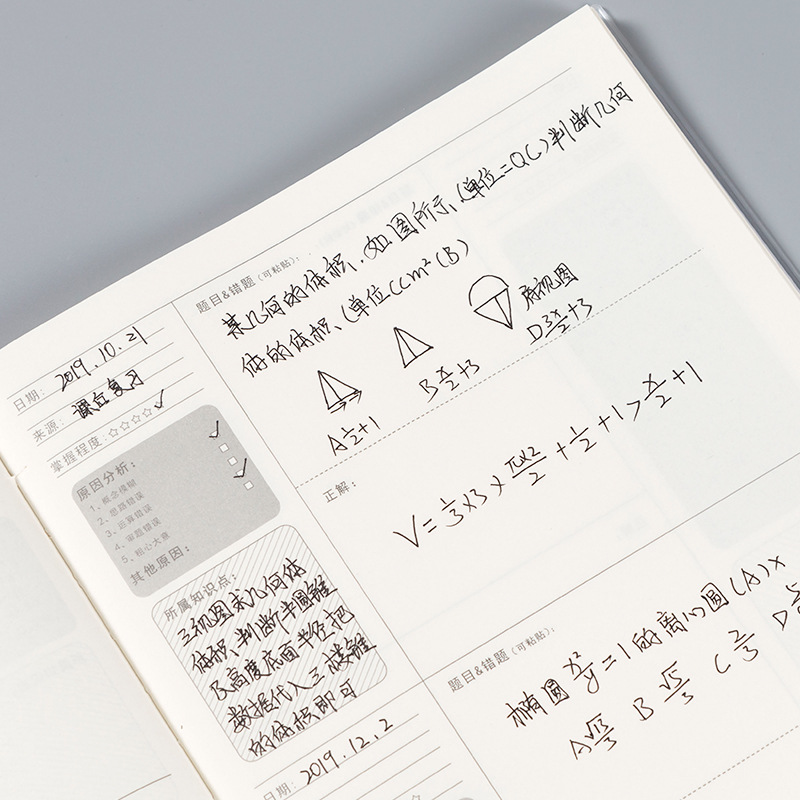 题目&错题(可粘贴):
某几何的体积.如图所示、(单位=QC)判断几何
体的体积、(单位CCm²(B)
俯视图
A½+1
B π/2+3
D 3π/2+3
日期: 2019.10.21
来源: 课后复习
掌握程度:☆☆☆☆✓
原因分析:
1、概念模糊
2、思路错误
3、运算错误
4、审题错误
5、粗心大意
其他原因:
正解:
V=⅓×3×π×2/2+½+1>π/2+1
所属知识点:
三视图求几何体
体积,判断半圆锥
及高度底面半径把
数据代入三棱锥
的体积即可
题目&错题(可粘贴):
椭圆x²/y=1的离心圆(A)×
A√13/3 B√5/3 C⅔ D5
日期: 2019.12.2